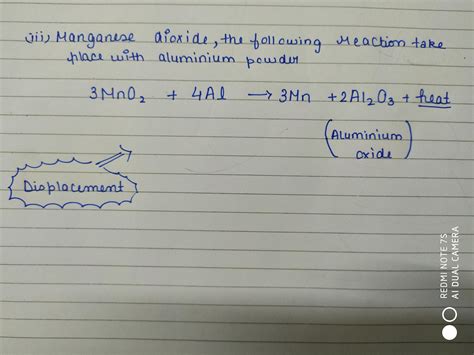 iii, Manganese dioxide, the following reaction take
place with aluminium powder
3MnO₂ + 4Al → 3Mn + 2Al₂O₃ + heat
(Aluminium
oxide)
Displacement
REDMI NOTE 7S
AI DUAL CAMERA